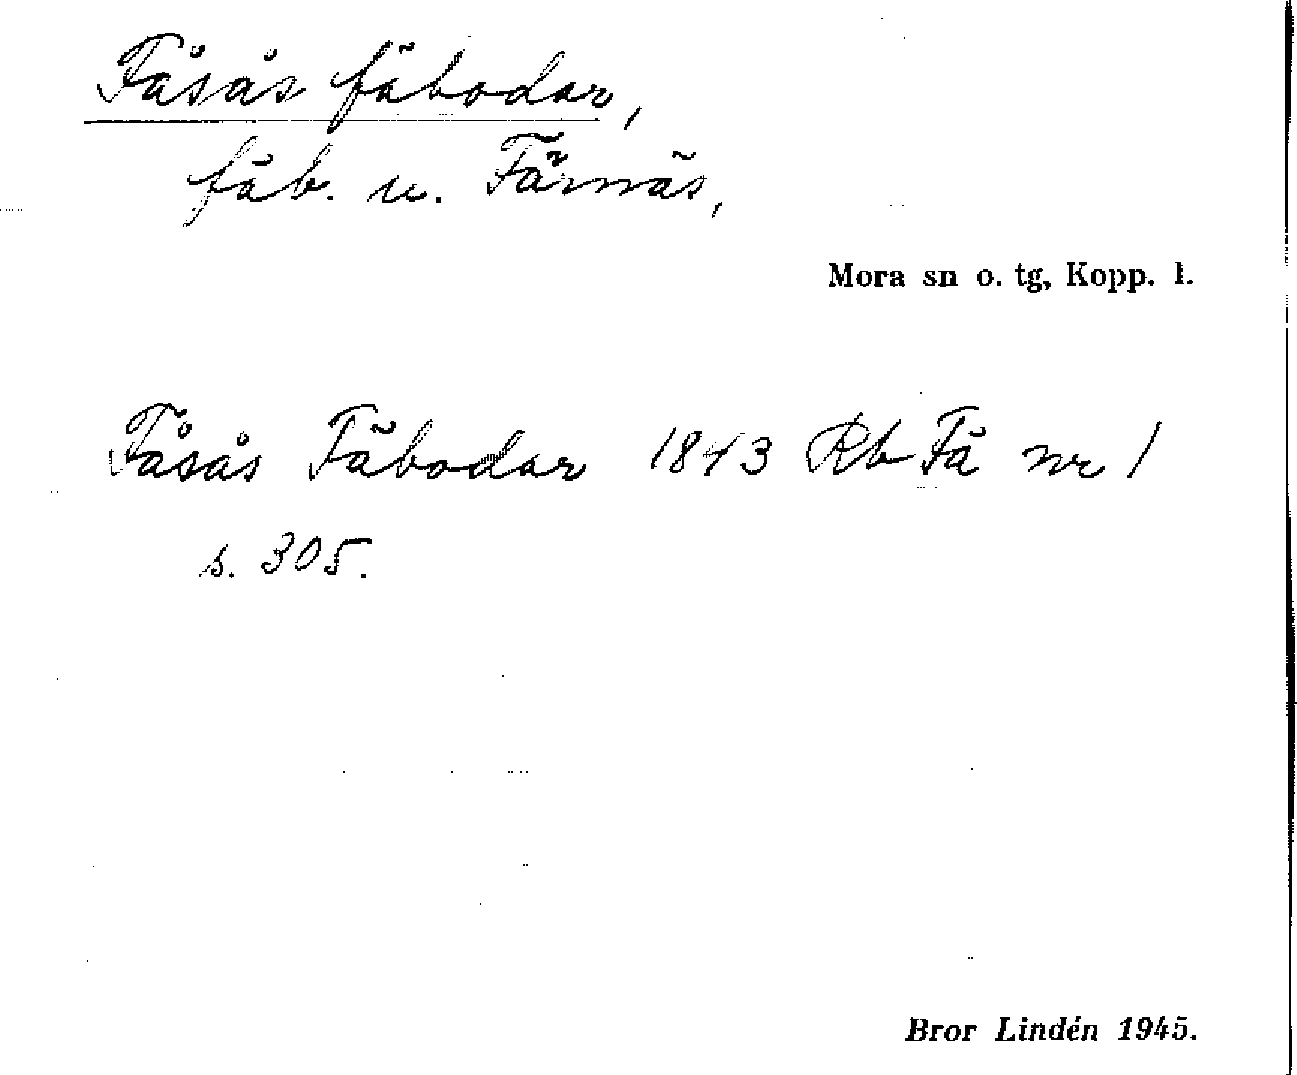 Fåsås fäbodar,
fäb. u. Färnäs,
Mora sn o. tg, Kopp. l.
Fåsås Fäbodar 1843 Rb Fä nr 1
s. 305.
Bror Lindén 1945.